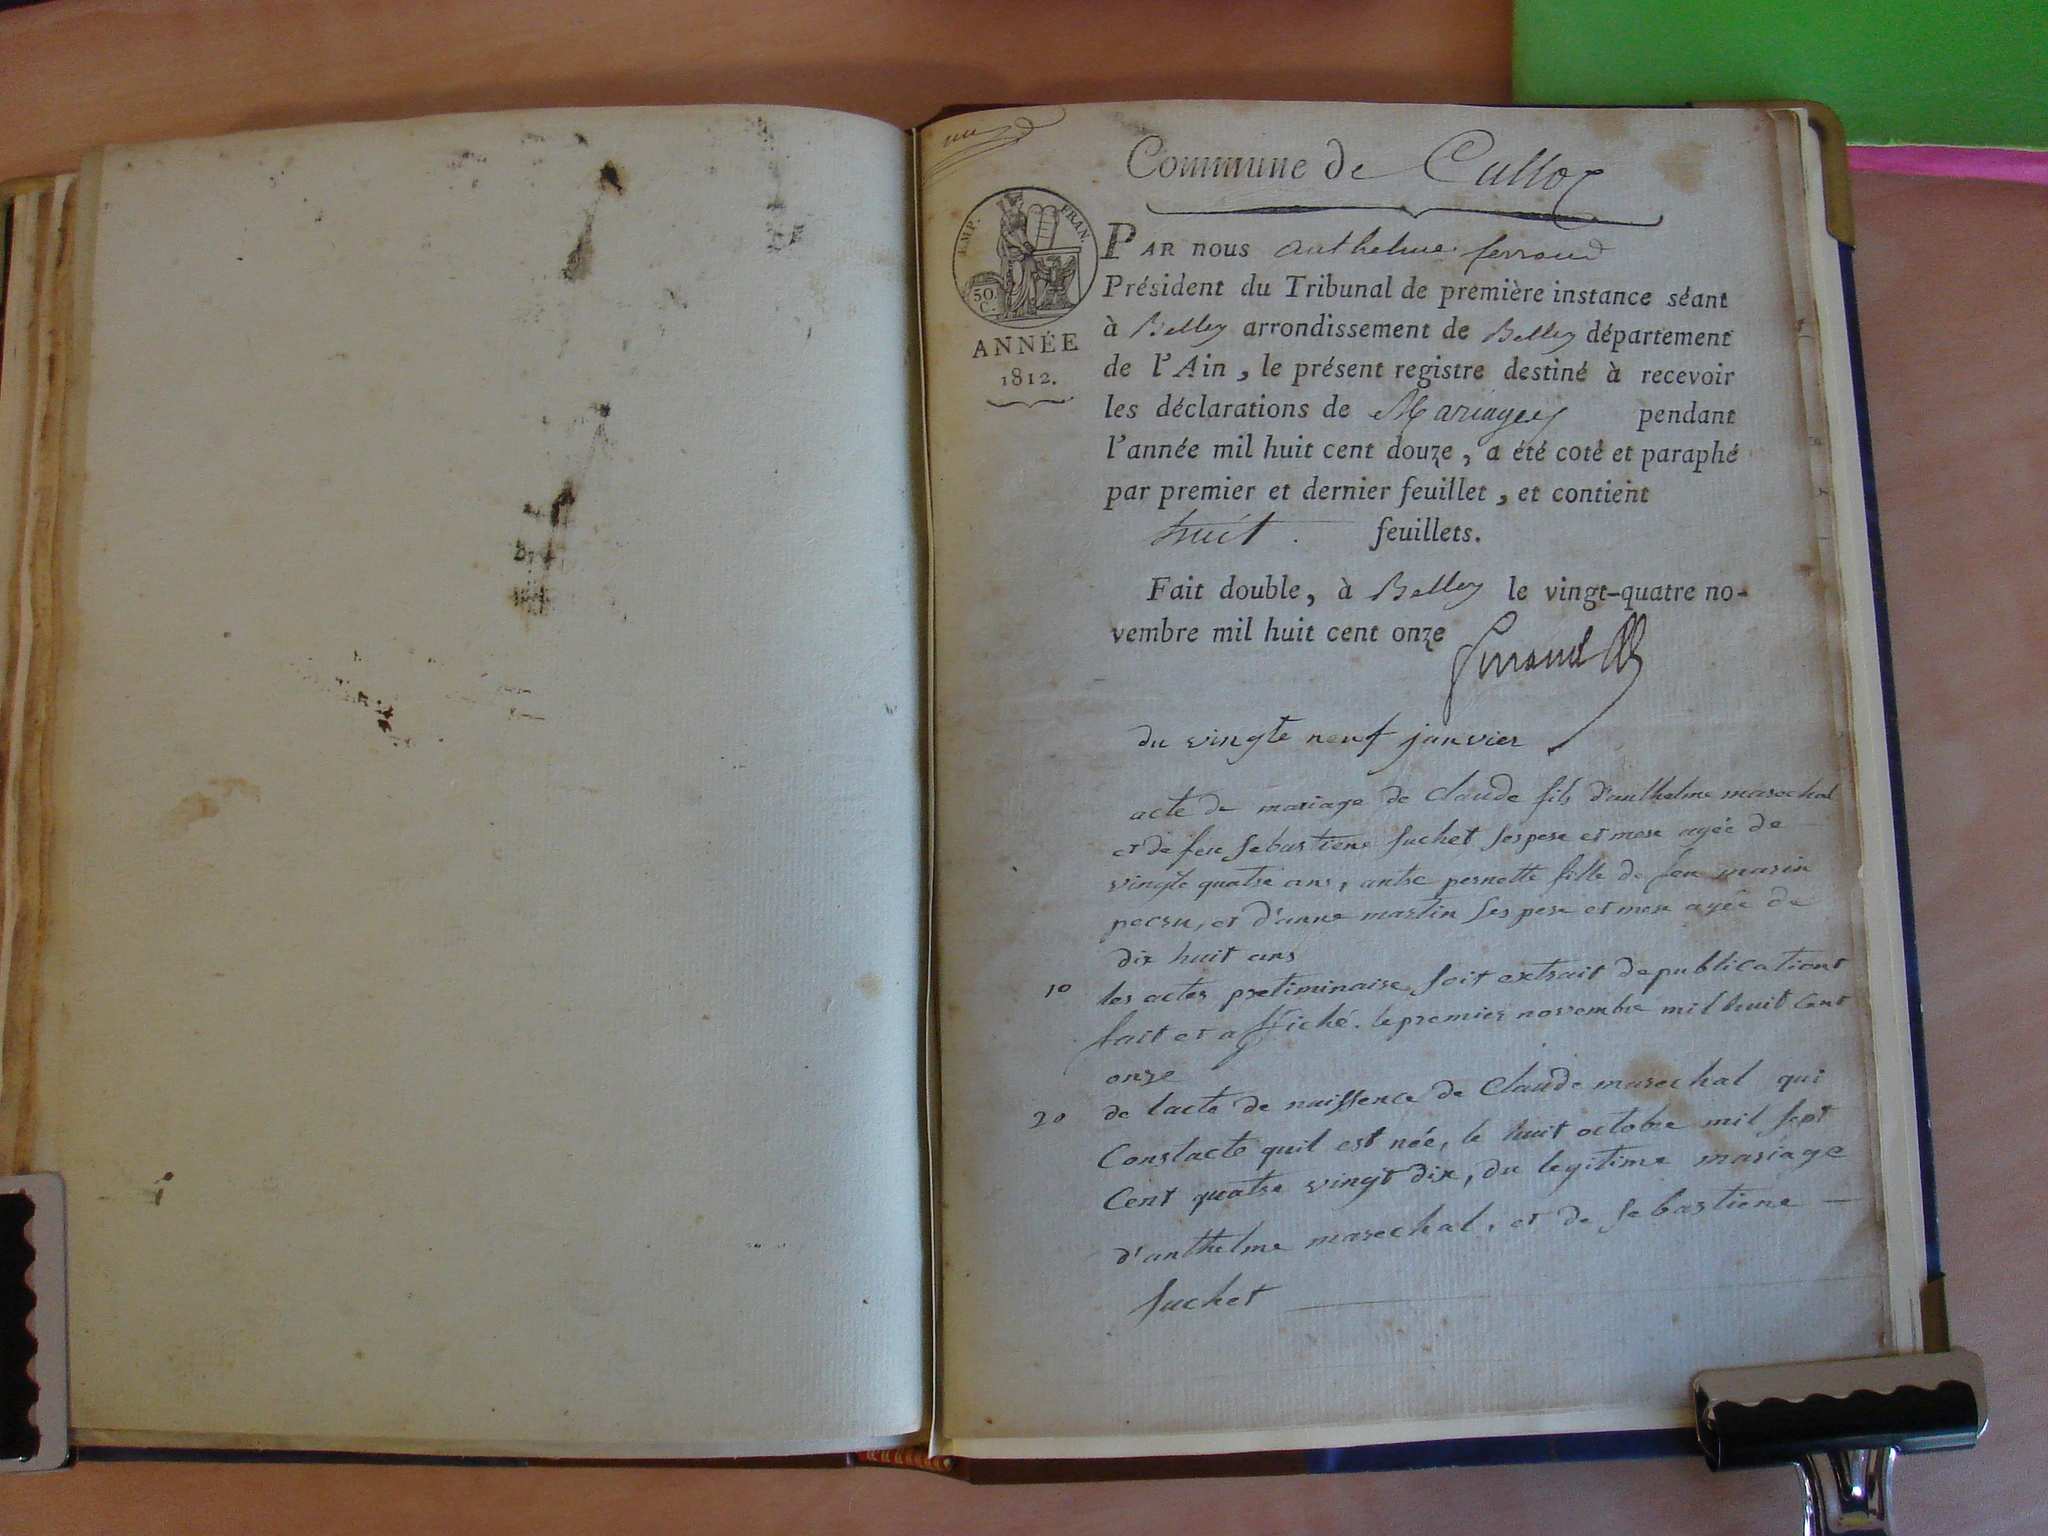 Commune de Culloz
EMP. FRAN.
50.
C.
ANNÉE
1812.
PAR NOUS anthelme ferrand
Président du Tribunal de première instance séant
à Belley arrondissement de Belley département
de l'Ain, le présent registre destiné à recevoir
les déclarations de Mariages pendant
l'année mil huit cent douze, a été coté et paraphé
par premier et dernier feuillet, et contient
huit. feuillets.
Fait double, à Belley le vingt-quatre no-
vembre mil huit cent onze
ferrand
du vingte neuf janvier
acte de mariage de claude fils d'anthelme marechal
et de feu sebastiene suchet ses pere et mere agée de
vingte quatre ans, antre pernette fille de feu marin
et d'anne martin ses pere et mere agée de
dix huit ans
10 les actes preliminaire soit extrait de publicationt
fait et affiché. le premier novembre mil huit cent
onze
20 de lacte de naissence de Claude marechal qui
Constacte quil est née, le huit octobre mil sept
Cent quatre vingt dix, du legitime mariage
d'anthelme marechal, et de sebastiene —
suchet